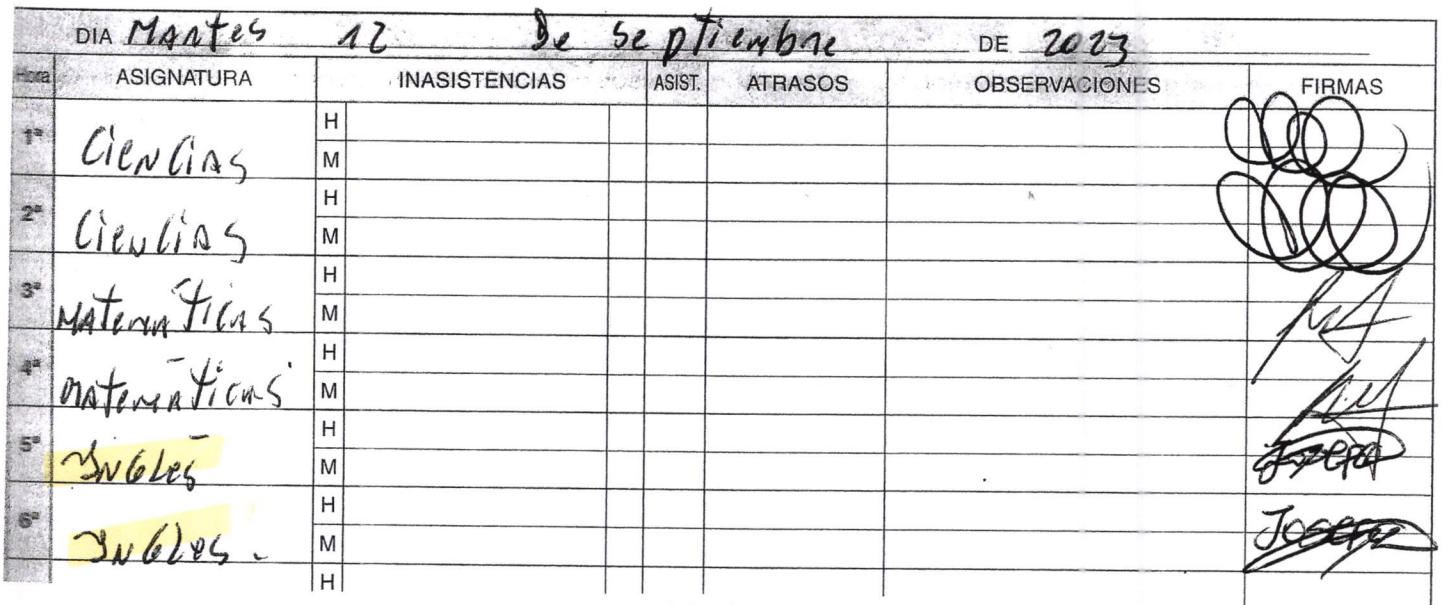 DIA Martes 12 De septiembre DE 2023
Hora ASIGNATURA INASISTENCIAS ASIST. ATRASOS OBSERVACIONES FIRMAS
1ª Ciencias H
M
2ª Ciencias H
M
3ª Matemáticas H
M
4ª matemáticas H
M
5ª Inglés H
M Josefa
6ª Ingles. H
M Josefa
H